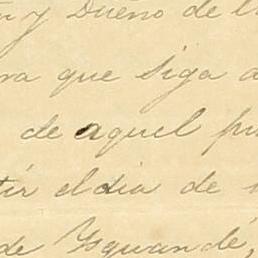 y Dueño de l
ra que siga a
de aquel pu
tir el dia de
de Yguandé,